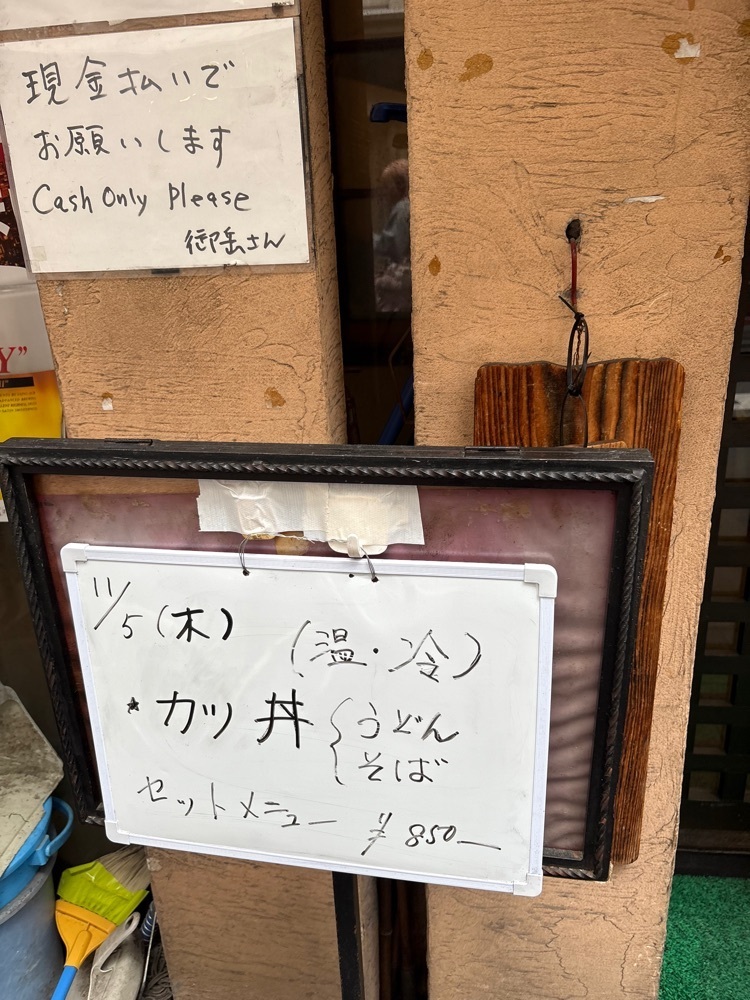 現金払いで
お願いします
Cash Only Please
御岳さん
Y”
11/5(木)
(温・冷)
★カツ丼{うどん
そば
セットメニュー ¥850—